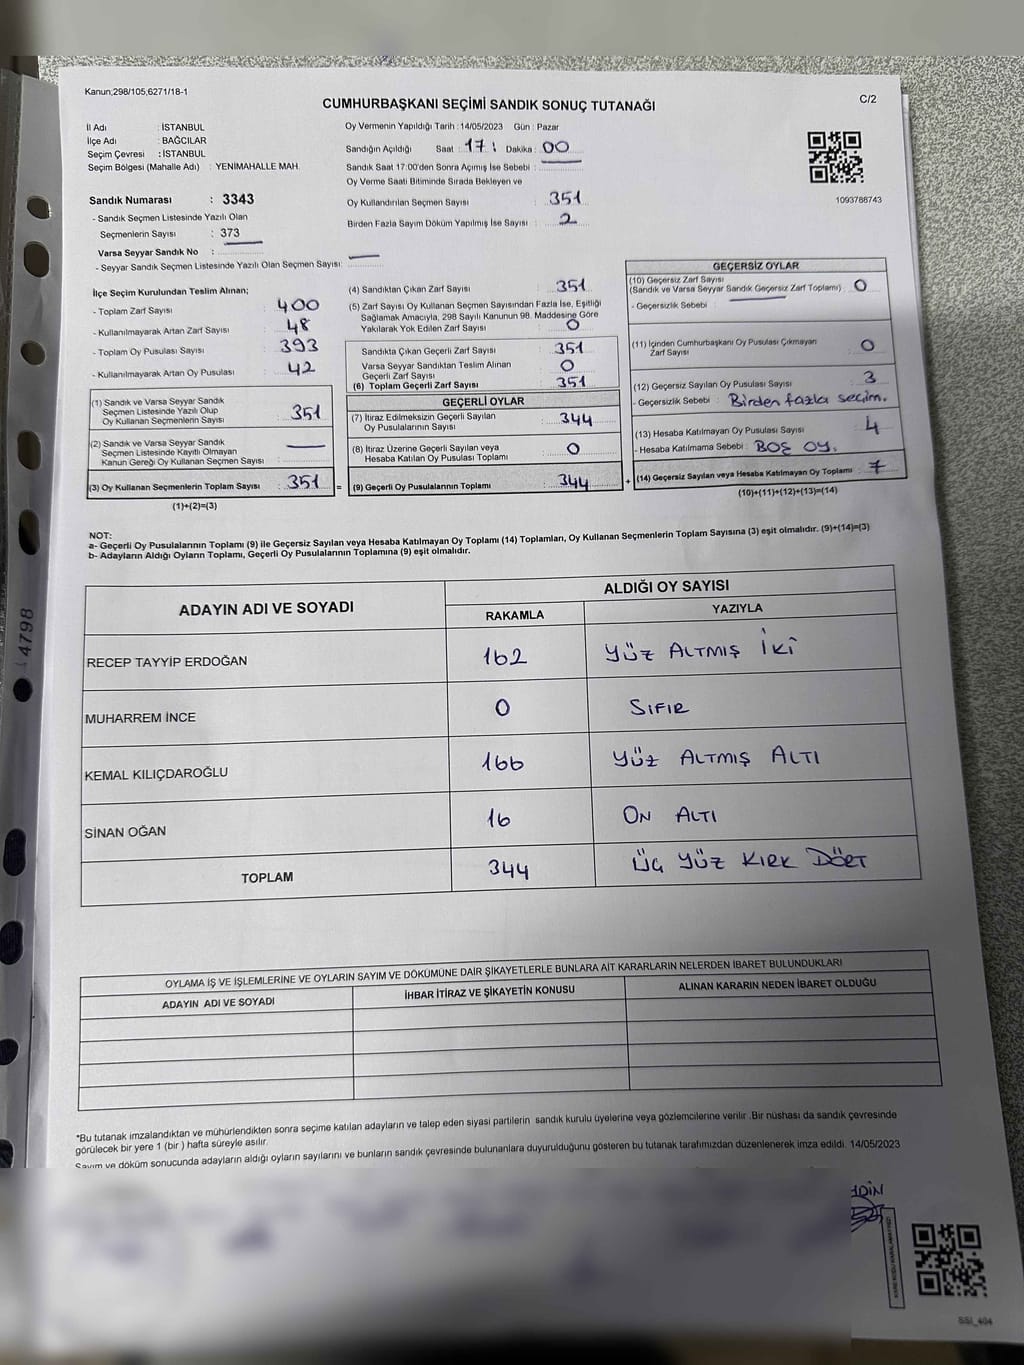 Kanun;298/105,6271/18-1
C/2
CUMHURBAŞKANI SEÇİMİ SANDIK SONUÇ TUTANAĞI
İl Adı : İSTANBUL
İlçe Adı : BAĞCILAR
Seçim Çevresi : İSTANBUL
Seçim Bölgesi (Mahalle Adı) : YENİMAHALLE MAH.
Sandık Numarası : 3343
- Sandık Seçmen Listesinde Yazılı Olan
Seçmenlerin Sayısı : 373
Varsa Seyyar Sandık No :
- Seyyar Sandık Seçmen Listesinde Yazılı Olan Seçmen Sayısı:
Oy Vermenin Yapıldığı Tarih : 14/05/2023 Gün : Pazar
Sandığın Açıldığı Saat : 17 : Dakika : 00
Sandık Saat 17:00'den Sonra Açımış İse Sebebi :
Oy Verme Saati Bitiminde Sırada Bekleyen ve
Oy Kullandırılan Seçmen Sayısı : 351
Birden Fazla Sayım Döküm Yapılmış İse Sayısı : 2
1093786743
İlçe Seçim Kurulundan Teslim Alınan;
- Toplam Zarf Sayısı : 400
- Kullanılmayarak Artan Zarf Sayısı : 48
- Toplam Oy Pusulası Sayısı : 393
- Kullanılmayarak Artan Oy Pusulası : 42
(1) Sandık ve Varsa Seyyar Sandık
Seçmen Listesinde Yazılı Olup
Oy Kullanan Seçmenlerin Sayısı : 351
(2) Sandık ve Varsa Seyyar Sandık
Seçmen Listesinde Kayıtlı Olmayan
Kanun Gereği Oy Kullanan Seçmen Sayısı :
(3) Oy Kullanan Seçmenlerin Toplam Sayısı : 351
(1)+(2)=(3)
=
(4) Sandıktan Çıkan Zarf Sayısı : 351
(5) Zarf Sayısı Oy Kullanan Seçmen Sayısından Fazla İse, Eşitliği
Sağlamak Amacıyla, 298 Sayılı Kanunun 98. Maddesine Göre
Yakılarak Yok Edilen Zarf Sayısı : 0
Sandıkta Çıkan Geçerli Zarf Sayısı : 351
Varsa Seyyar Sandıktan Teslim Alınan
Geçerli Zarf Sayısı : 0
(6) Toplam Geçerli Zarf Sayısı : 351
GEÇERLİ OYLAR
(7) İtiraz Edilmeksizin Geçerli Sayılan
Oy Pusulalarının Sayısı : 344
(8) İtiraz Üzerine Geçerli Sayılan veya
Hesaba Katılan Oy Pusulası Toplamı : 0
(9) Geçerli Oy Pusulalarının Toplamı : 344
+
GEÇERSİZ OYLAR
(10) Geçersiz Zarf Sayısı
(Sandık ve Varsa Seyyar Sandık Geçersiz Zarf Toplamı) : 0
- Geçersizlik Sebebi :
(11) İçinden Cumhurbaşkanı Oy Pusulası Çıkmayan
Zarf Sayısı : 0
(12) Geçersiz Sayılan Oy Pusulası Sayısı : 3
- Geçersizlik Sebebi : Birden fazla seçim.
(13) Hesaba Katılmayan Oy Pusulası Sayısı : 4
- Hesaba Katılmama Sebebi : BOŞ OY.
(14) Geçersiz Sayılan veya Hesaba Katılmayan Oy Toplamı : 7
(10)+(11)+(12)+(13)=(14)
NOT:
a- Geçerli Oy Pusulalarının Toplamı (9) ile Geçersiz Sayılan veya Hesaba Katılmayan Oy Toplamı (14) Toplamları, Oy Kullanan Seçmenlerin Toplam Sayısına (3) eşit olmalıdır. (9)+(14)=(3)
b- Adayların Aldığı Oyların Toplamı, Geçerli Oy Pusulalarının Toplamına (9) eşit olmalıdır.
ADAYIN ADI VE SOYADI
ALDIĞI OY SAYISI
RAKAMLA YAZIYLA
RECEP TAYYİP ERDOĞAN 162 YÜZ ALTMIŞ İKİ
MUHARREM İNCE 0 SIFIR
KEMAL KILIÇDAROĞLU 166 YÜZ ALTMIŞ ALTI
SİNAN OĞAN 16 ON ALTI
TOPLAM 344 ÜÇ YÜZ KIRK DÖRT
OYLAMA İŞ VE İŞLEMLERİNE VE OYLARIN SAYIM VE DÖKÜMÜNE DAİR ŞİKAYETLERLE BUNLARA AİT KARARLARIN NELERDEN İBARET BULUNDUKLARI
ADAYIN ADI VE SOYADI İHBAR İTİRAZ VE ŞİKAYETİN KONUSU ALINAN KARARIN NEDEN İBARET OLDUĞU
*Bu tutanak imzalandıktan ve mühürlendikten sonra seçime katılan adayların ve talep eden siyasi partilerin sandık kurulu üyelerine veya gözlemcilerine verilir .Bir nüshası da sandık çevresinde
görülecek bir yere 1 (bir ) hafta süreyle asılır.
Sayım ve döküm sonucunda adayların aldığı oyların sayılarını ve bunların sandık çevresinde bulunanlara duyurulduğunu gösteren bu tutanak tarafımızdan düzenlenerek imza edildi. 14/05/2023
SSI_404
14798